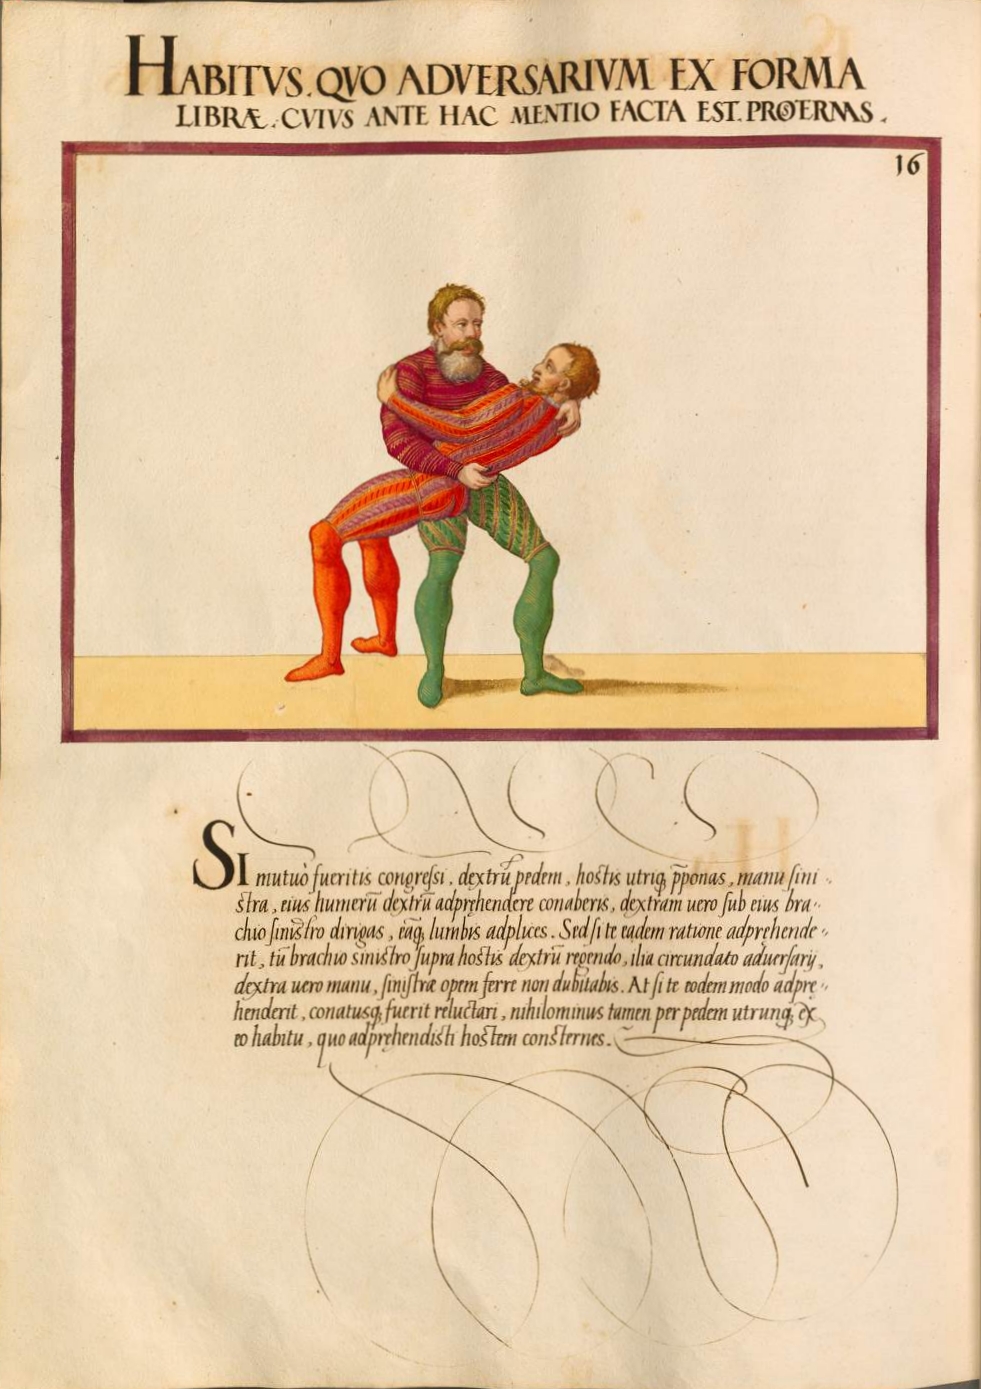 HABITVS. QVO ADVERSARIVM EX FORMA
LIBRÆ. CVIVS ANTE HAC MENTIO FACTA EST.
16
SI mutuò fueritis congressi, dextrũ pedem, hostis utriq; p̃ponas, manu sini
stra, eius humerũ dextrũ adpręhendere conaberis, dextram uero sub eius bra
chio sinistro dirigas, eãq; lumbis adplices. Sed si te eadem ratione adpręhende
rit, tũ brachio sinistro supra hostis dextrũ regendo, ilia circundato aduersarij,
dextra uero manu, sinistræ opem ferre non dubitabis. At si te eodem modo adprę
henderit, conatusq; fuerit reluctari, nihilominus tamen per pedem utrunq; ex
eo habitu, quo adpręhendisti hostem consternes.